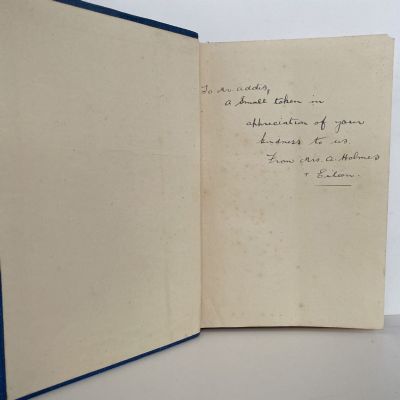 To Mr Addis,
a small token in
appreciation of your
kindness to us
From Mrs. A. Holmes
+ Eileen.